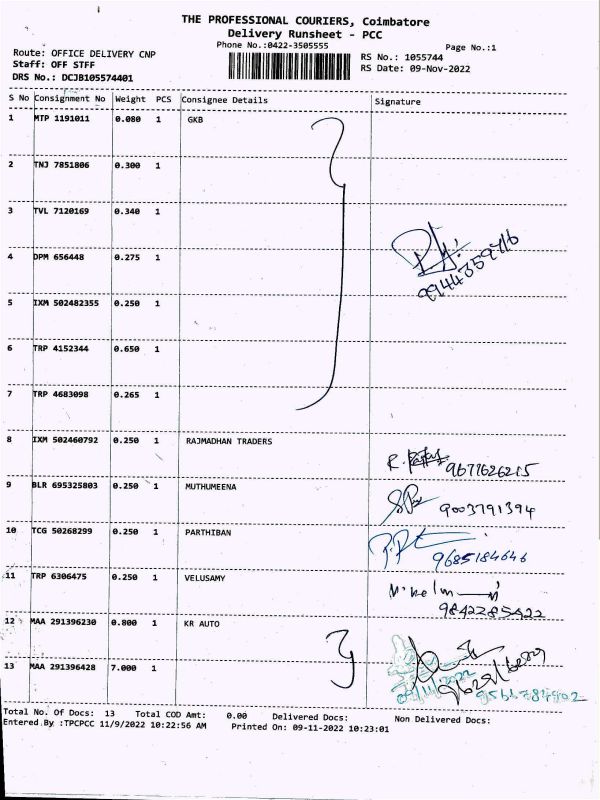 THE PROFESSIONAL COURIERS, Coimbatore
Delivery Runsheet - PCC
Phone No.:0422-3505555
Page No.:1
Route: OFFICE DELIVERY CNP
RS No.: 1055744
Staff: OFF STFF
RS Date: 09-Nov-2022
DRS No.: DCJB105574401
S No Consignment No Weight PCS Consignee Details Signature
1 MTP 1191011 0.080 1 GKB
2 TNJ 7851806 0.300 1
3 TVL 7120169 0.340 1
4 DPM 656448 0.275 1
5 IXM 502482355 0.250 1
6 TRP 4152344 0.650 1
7 TRP 4683098 0.265 1
8 IXM 502460792 0.250 1 RAJMADHAN TRADERS 9677626215
9 BLR 695325803 0.250 1 MUTHUMEENA 9003791394
10 TCG 50268299 0.250 1 PARTHIBAN 9685184646
11 TRP 6306475 0.250 1 VELUSAMY
9842285422
12 MAA 291396230 0.800 1 KR AUTO
13 MAA 291396428 7.000 1
Total No. Of Docs: 13 Total COD Amt: 0.00 Delivered Docs: Non Delivered Docs:
Entered By :TPCPCC 11/9/2022 10:22:56 AM Printed On: 09-11-2022 10:23:01